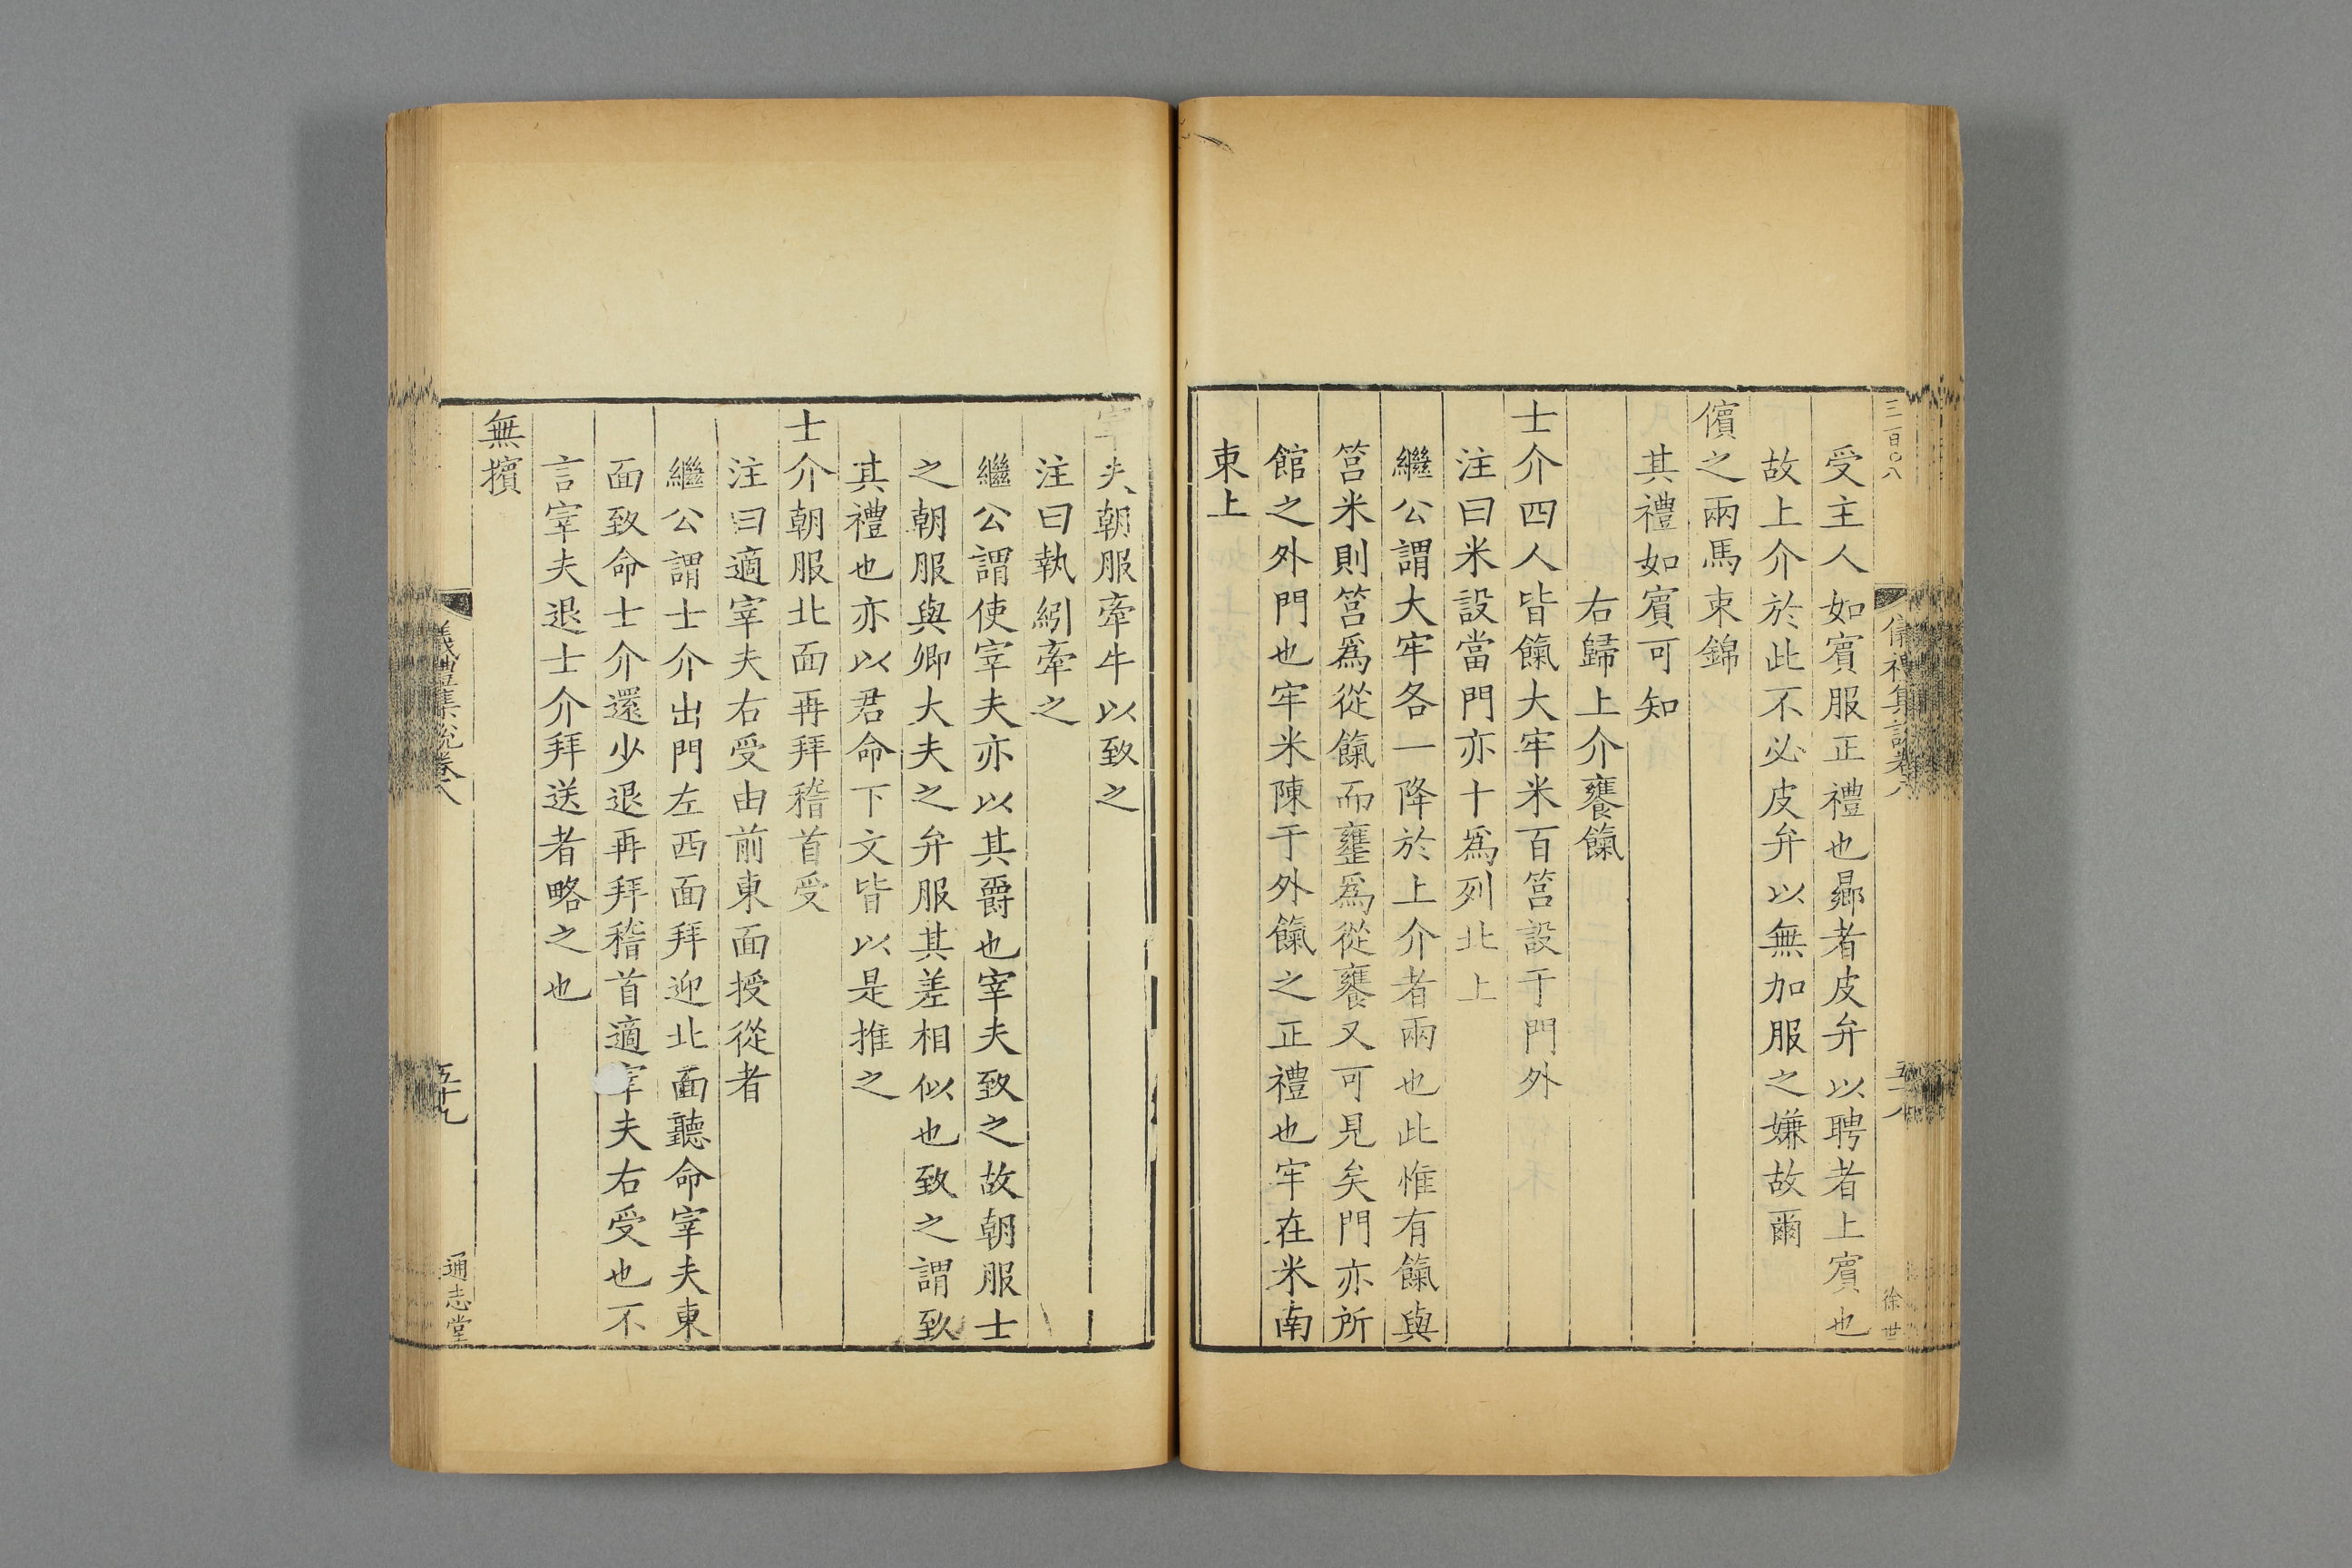 三百〇八
儀禮集說卷八
五十八
徐世
受主人如賓服正禮也曏者皮弁以聘者上賓也
故上介於此不必皮弁以無加服之嫌故爾
儐之兩馬束錦
其禮如賓可知
右歸上介饔餼
士介四人皆餼大牢米百筥設于門外
注曰米設當門亦十爲列北上
繼公謂大牢各一降於上介者兩也此惟有餼與
筥米則筥爲從餼而壅爲從饔又可見矣門亦所
館之外門也牢米陳于外餼之正禮也牢在米南
東上
宰夫朝服牽牛以致之
注曰執紖牽之
繼公謂使宰夫亦以其爵也宰夫致之故朝服士
之朝服與卿大夫之弁服其差相似也致之謂致
其禮也亦以君命下文皆以是推之
士介朝服北面再拜稽首受
注曰適宰夫右受由前東面授從者
繼公謂士介出門左西面拜迎北面聽命宰夫東
面致命士介還少退再拜稽首適宰夫右受也不
言宰夫退士介拜送者略之也
無擯
儀禮集說卷八
五十九
通志堂